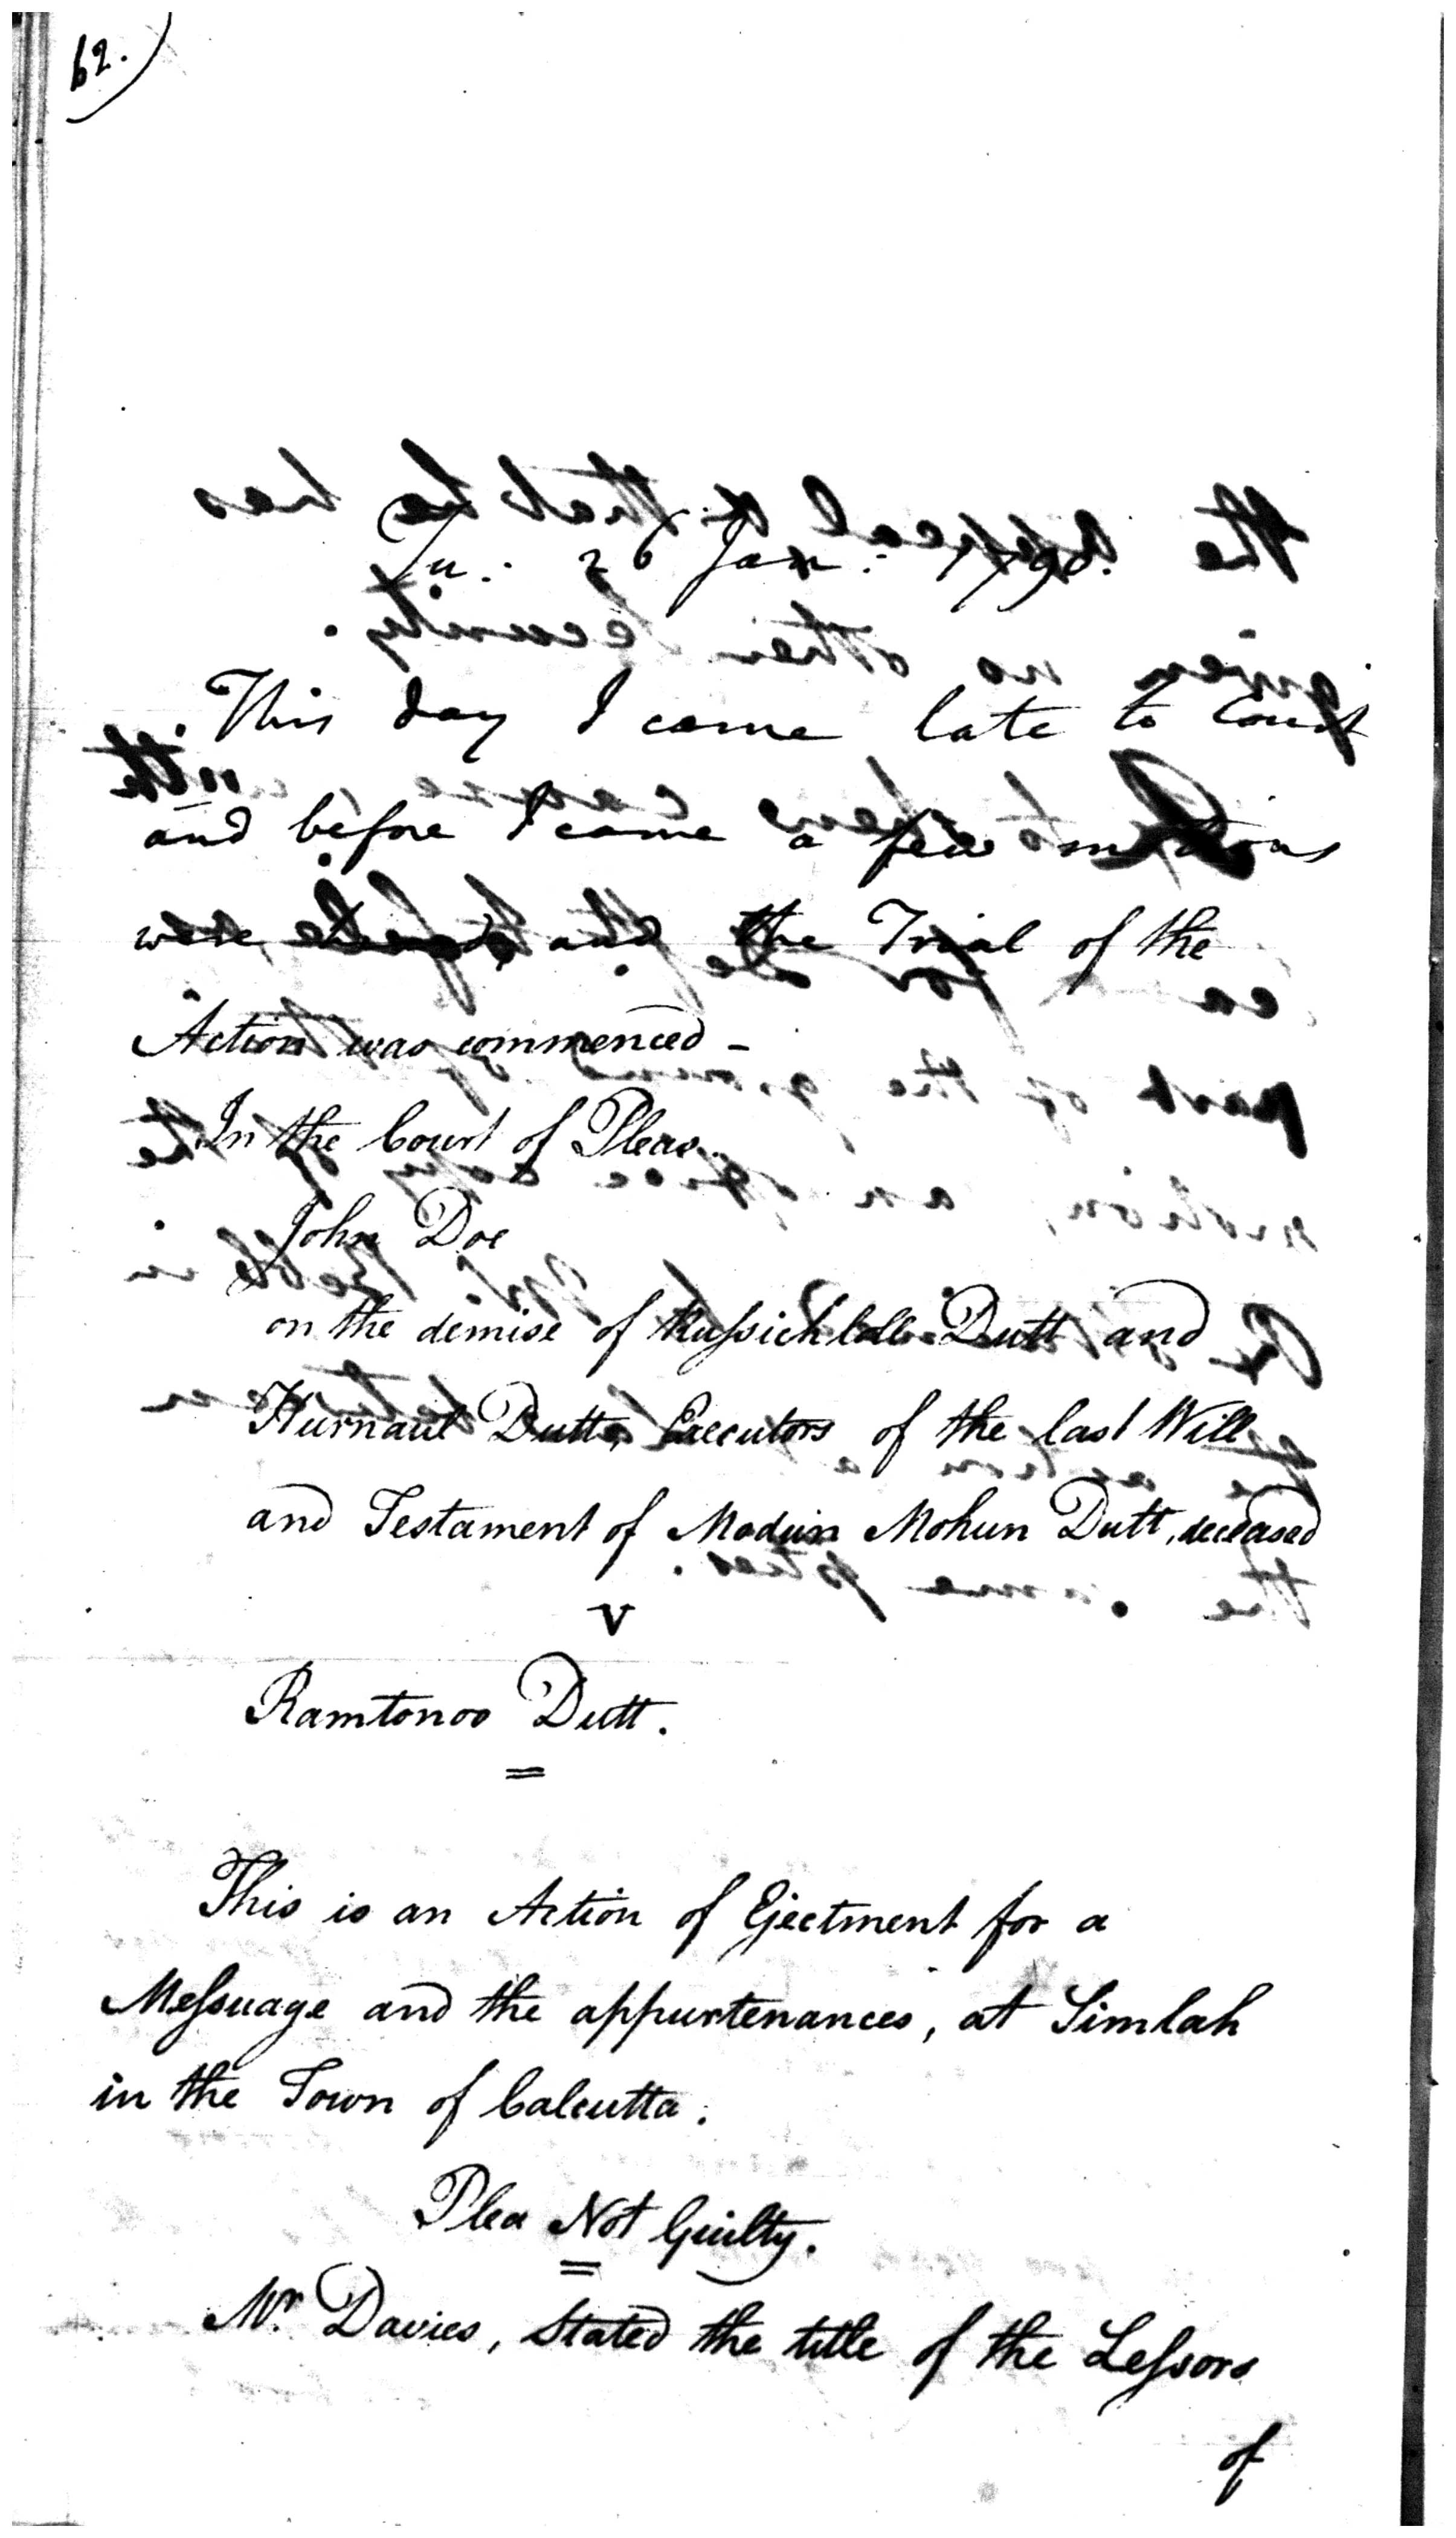 62.
Tu. 26 Jan: 1790.
This day I came late to Court
and before I came a few motions
were, and the Trial of the
Action was commenced -
In the Court of Pleas.
John Doe
on the demise of Rufsick loll Dutt and
Hurnaut Dutt, Executors of the last Will
and Testament of Modun Mohun Dutt, deceased
v
Ramtonoo Dutt.
This is an Action of Ejectment for a
Mefsuage and the appurtenances, at Simlah
in the Town of Calcutta.
Plea Not Guilty.
Mr. Davies, Stated the title of the Lefsors
of